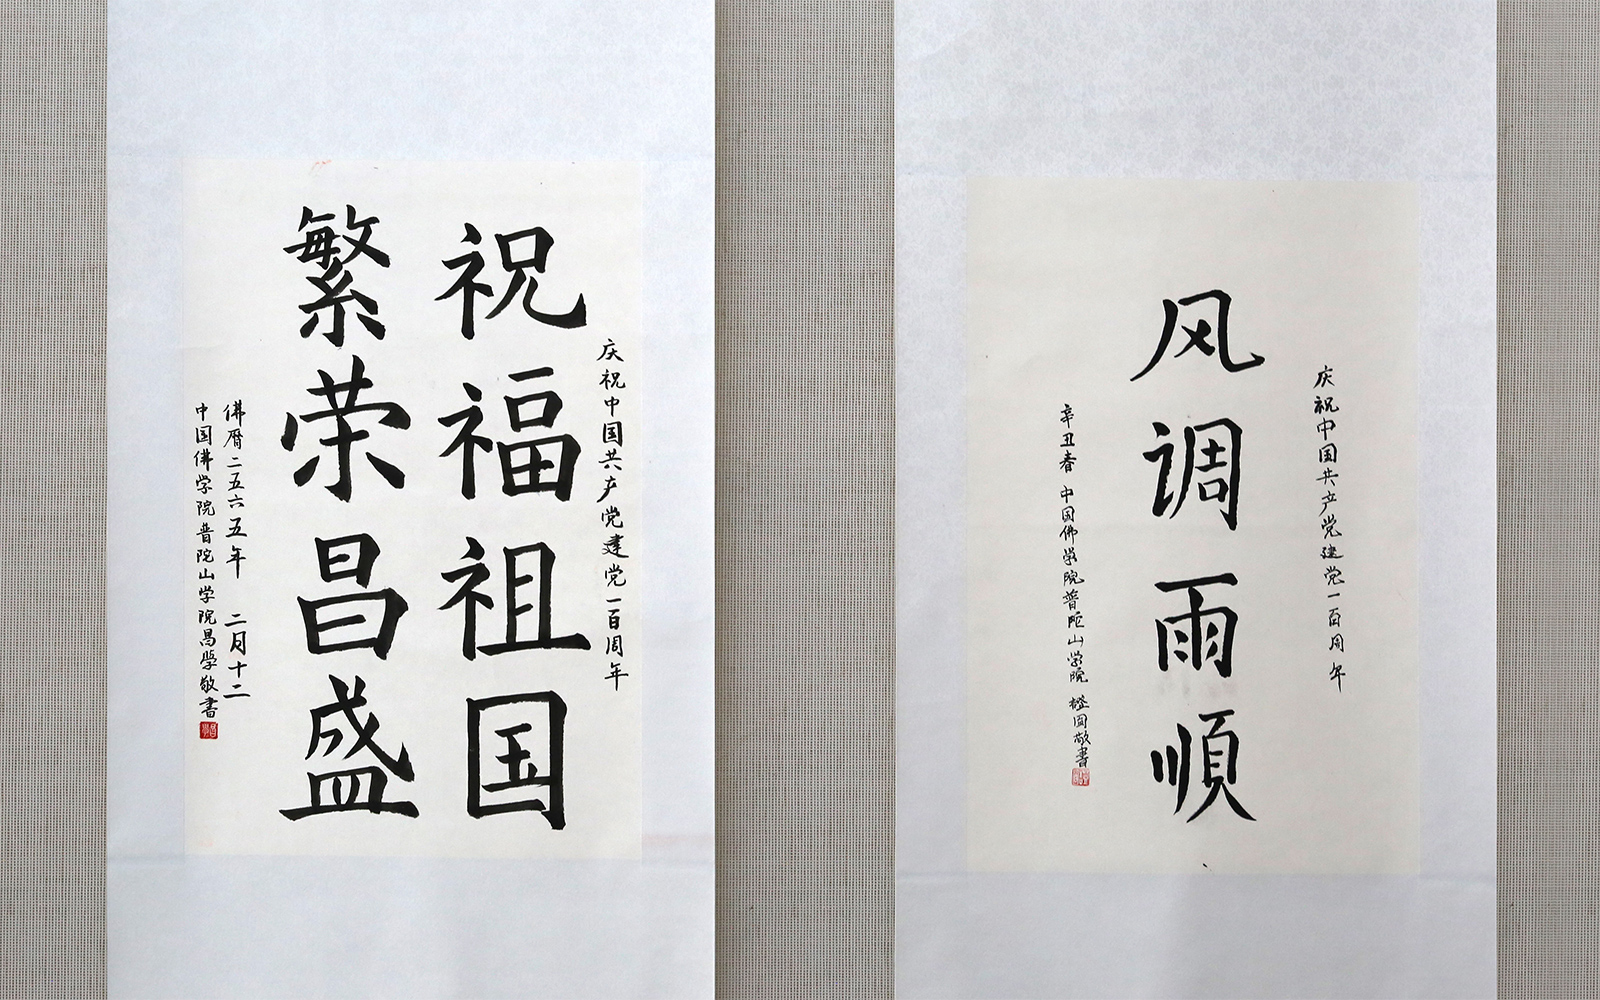 庆祝中国共产党建党一百周年
祝福祖国
繁荣昌盛
佛曆二五六五年 二月十二
中国佛学院普陀山学院昌學敬書
庆祝中国共产党建党一百周年
风调雨順
辛丑春 中国佛学院普陀山学院 澄圆敬書